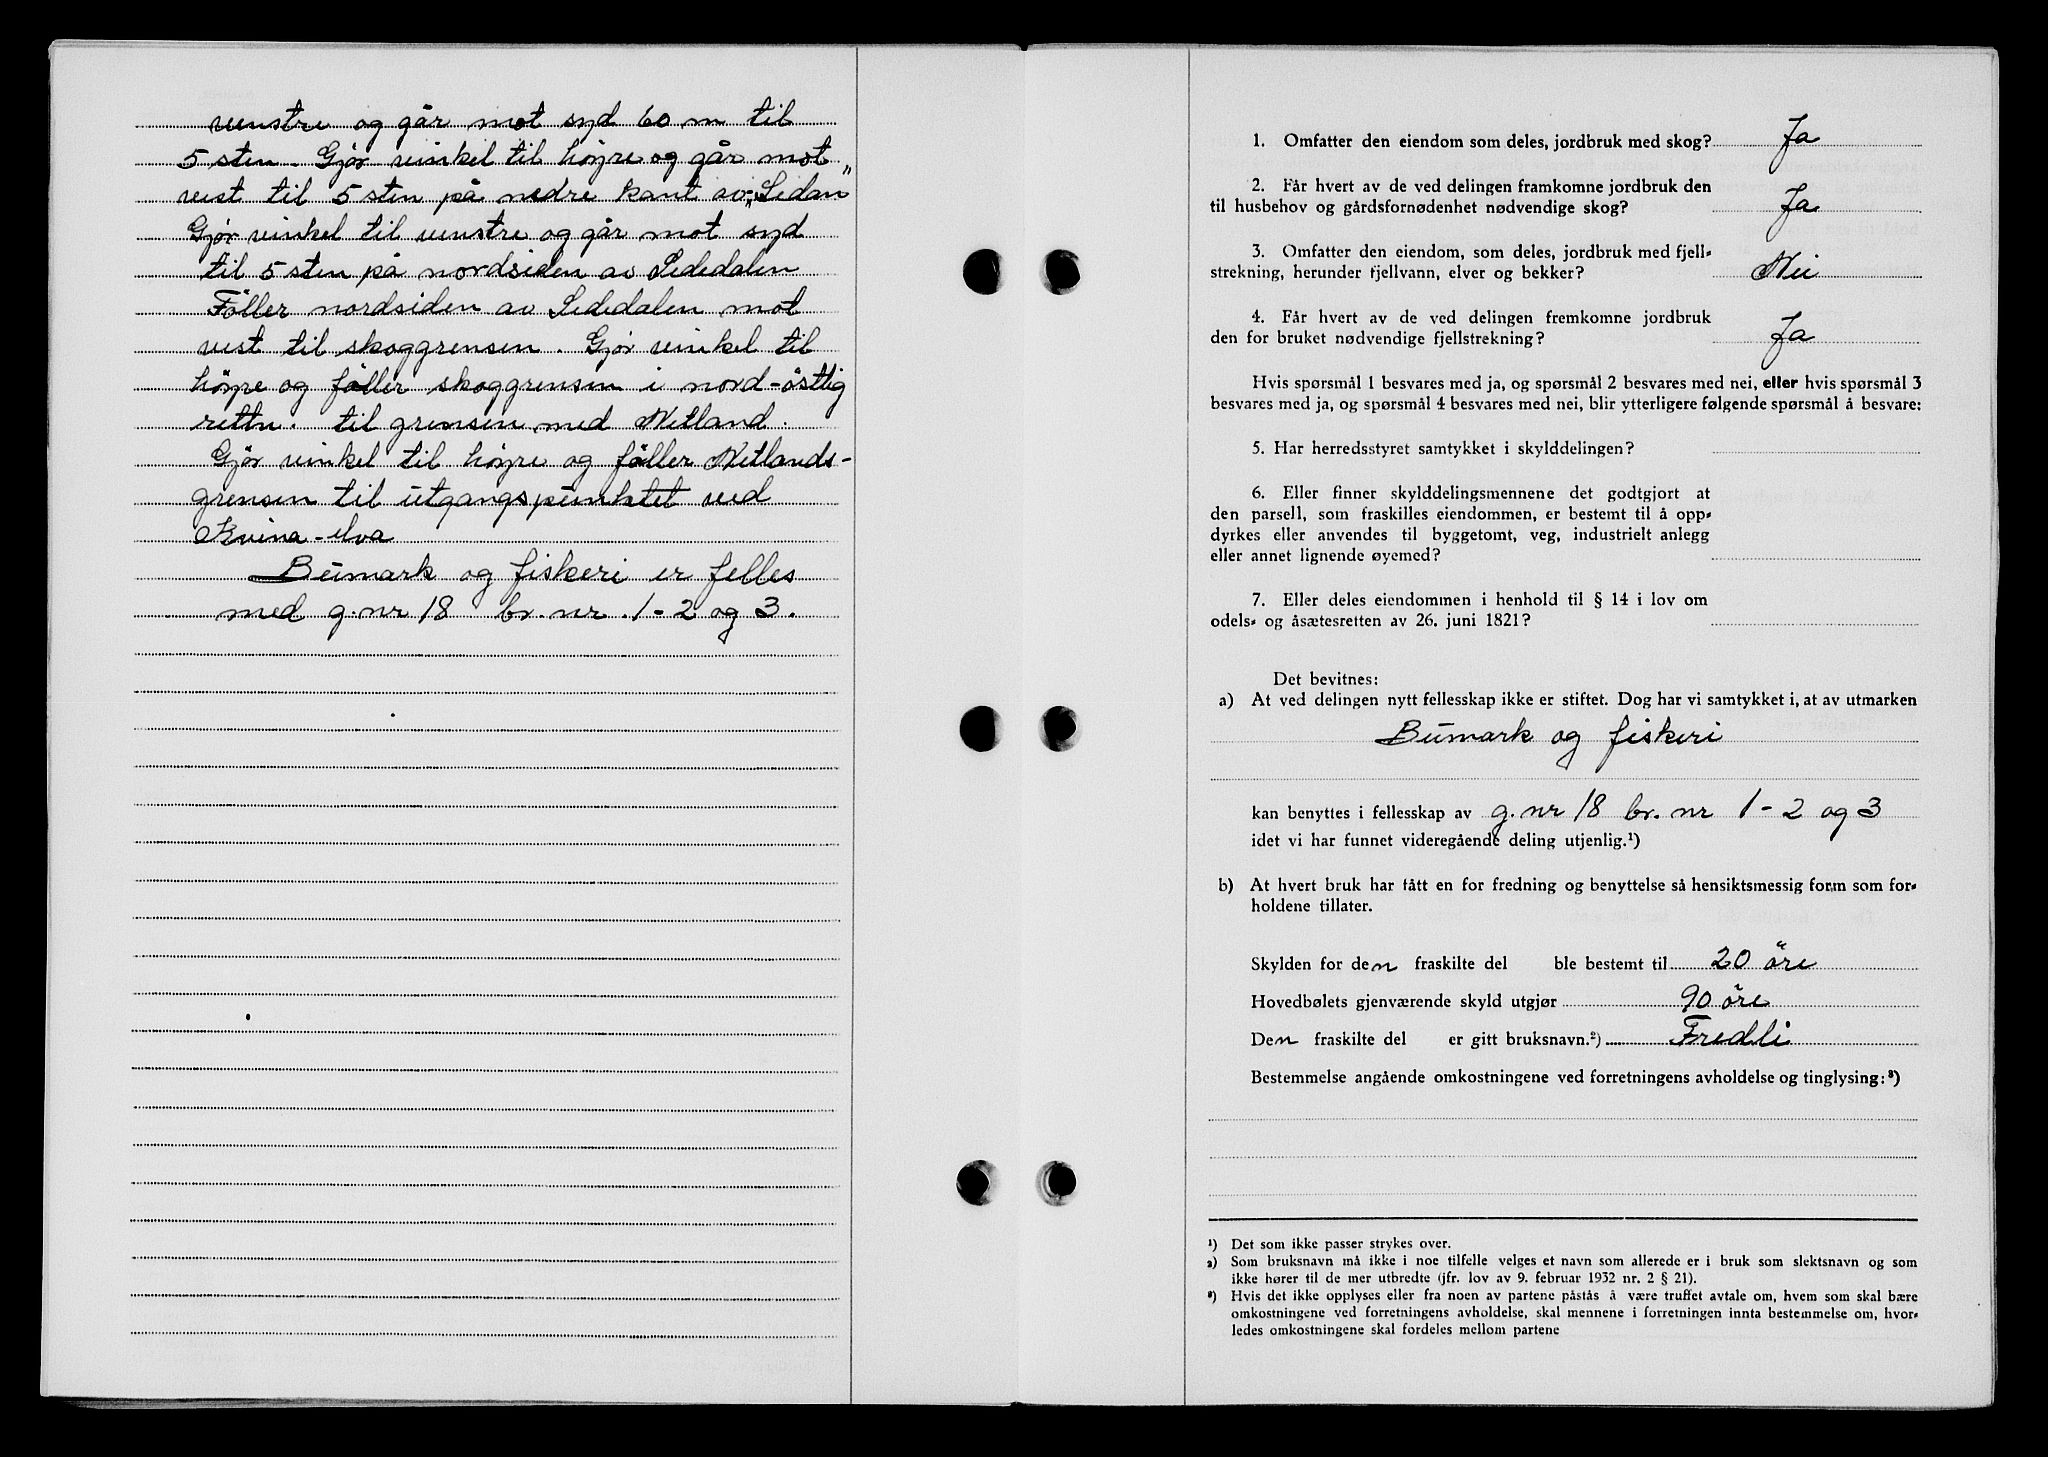 venstre og går mot syd 60 m til
5 sten. Gjör vinkel til höyre og går mot
vest til 5 sten på nedre kant av „Sedan"
Gjör vinkel til venstre og går mot syd
til 5 sten på nordsiden av Sededalen
Föller nordsiden av Sededalen mot
vest til skoggrensen. Gjör vinkel til
höyre og föller skoggrensen i nord-östlig
rettn. til grensen med Netland.
Gjör vinkel til höyre og föller Netlands-
grensen til utgangspunktet ved
Kvina-elva
Bumark og fiskeri er felles
med g.nr 18 br.nr. 1-2 og 3.
1. Omfatter den eiendom som deles, jordbruk med skog? Ja
2. Får hvert av de ved delingen framkomne jordbruk den
til husbehov og gårdsfornødenhet nødvendige skog? Ja
3. Omfatter den eiendom, som deles, jordbruk med fjell-
strekning, herunder fjellvann, elver og bekker? Nei
4. Får hvert av de ved delingen fremkomne jordbruk
den for bruket nødvendige fjellstrekning? Ja
Hvis spørsmål 1 besvares med ja, og spørsmål 2 besvares med nei, eller hvis spørsmål 3
besvares med ja, og spørsmål 4 besvares med nei, blir ytterligere følgende spørsmål å besvare:
5. Har herredsstyret samtykket i skylddelingen?
6. Eller finner skylddelingsmennene det godtgjort at
den parsell, som fraskilles eiendommen, er bestemt til å opp-
dyrkes eller anvendes til byggetomt, veg, industrielt anlegg
eller annet lignende øyemed?
7. Eller deles eiendommen i henhold til § 14 i lov om
odels- og åsætesretten av 26. juni 1821?
Det bevitnes:
a) At ved delingen nytt fellesskap ikke er stiftet. Dog har vi samtykket i, at av utmarken
Bumark og fiskeri
kan benyttes i fellesskap av g.nr 18 br.nr 1-2 og 3
idet vi har funnet videregående deling utjenlig.¹)
b) At hvert bruk har fått en for fredning og benyttelse så hensiktsmessig form som for-
holdene tillater.
Skylden for den fraskilte del ble bestemt til 20 öre
Hovedbølets gjenværende skyld utgjør 90 öre
Den fraskilte del er gitt bruksnavn.²) Fredli
Bestemmelse angående omkostningene ved forretningens avholdelse og tinglysing:³)
¹) Det som ikke passer strykes over.
²) Som bruksnavn må ikke i noe tilfelle velges et navn som allerede er i bruk som slektsnavn og som
ikke hører til de mer utbredte (jfr. lov av 9. februar 1932 nr. 2 § 21).
³) Hvis det ikke opplyses eller fra noen av partene påstås å være truffet avtale om, hvem som skal bære
omkostningene ved forretningens avholdelse, skal mennene i forretningen innta bestemmelse om, hvor-
ledes omkostningene skal fordeles mellom partene